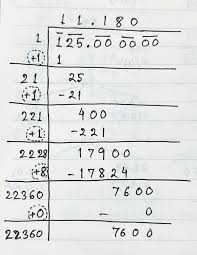 11.180
1 125.00 00 00
(+1) 1
21 25
(+1) -21
221 400
(+1) -221
2228 17900
(+8) -17824
22360 7600
(+0) - 0
22360 7600